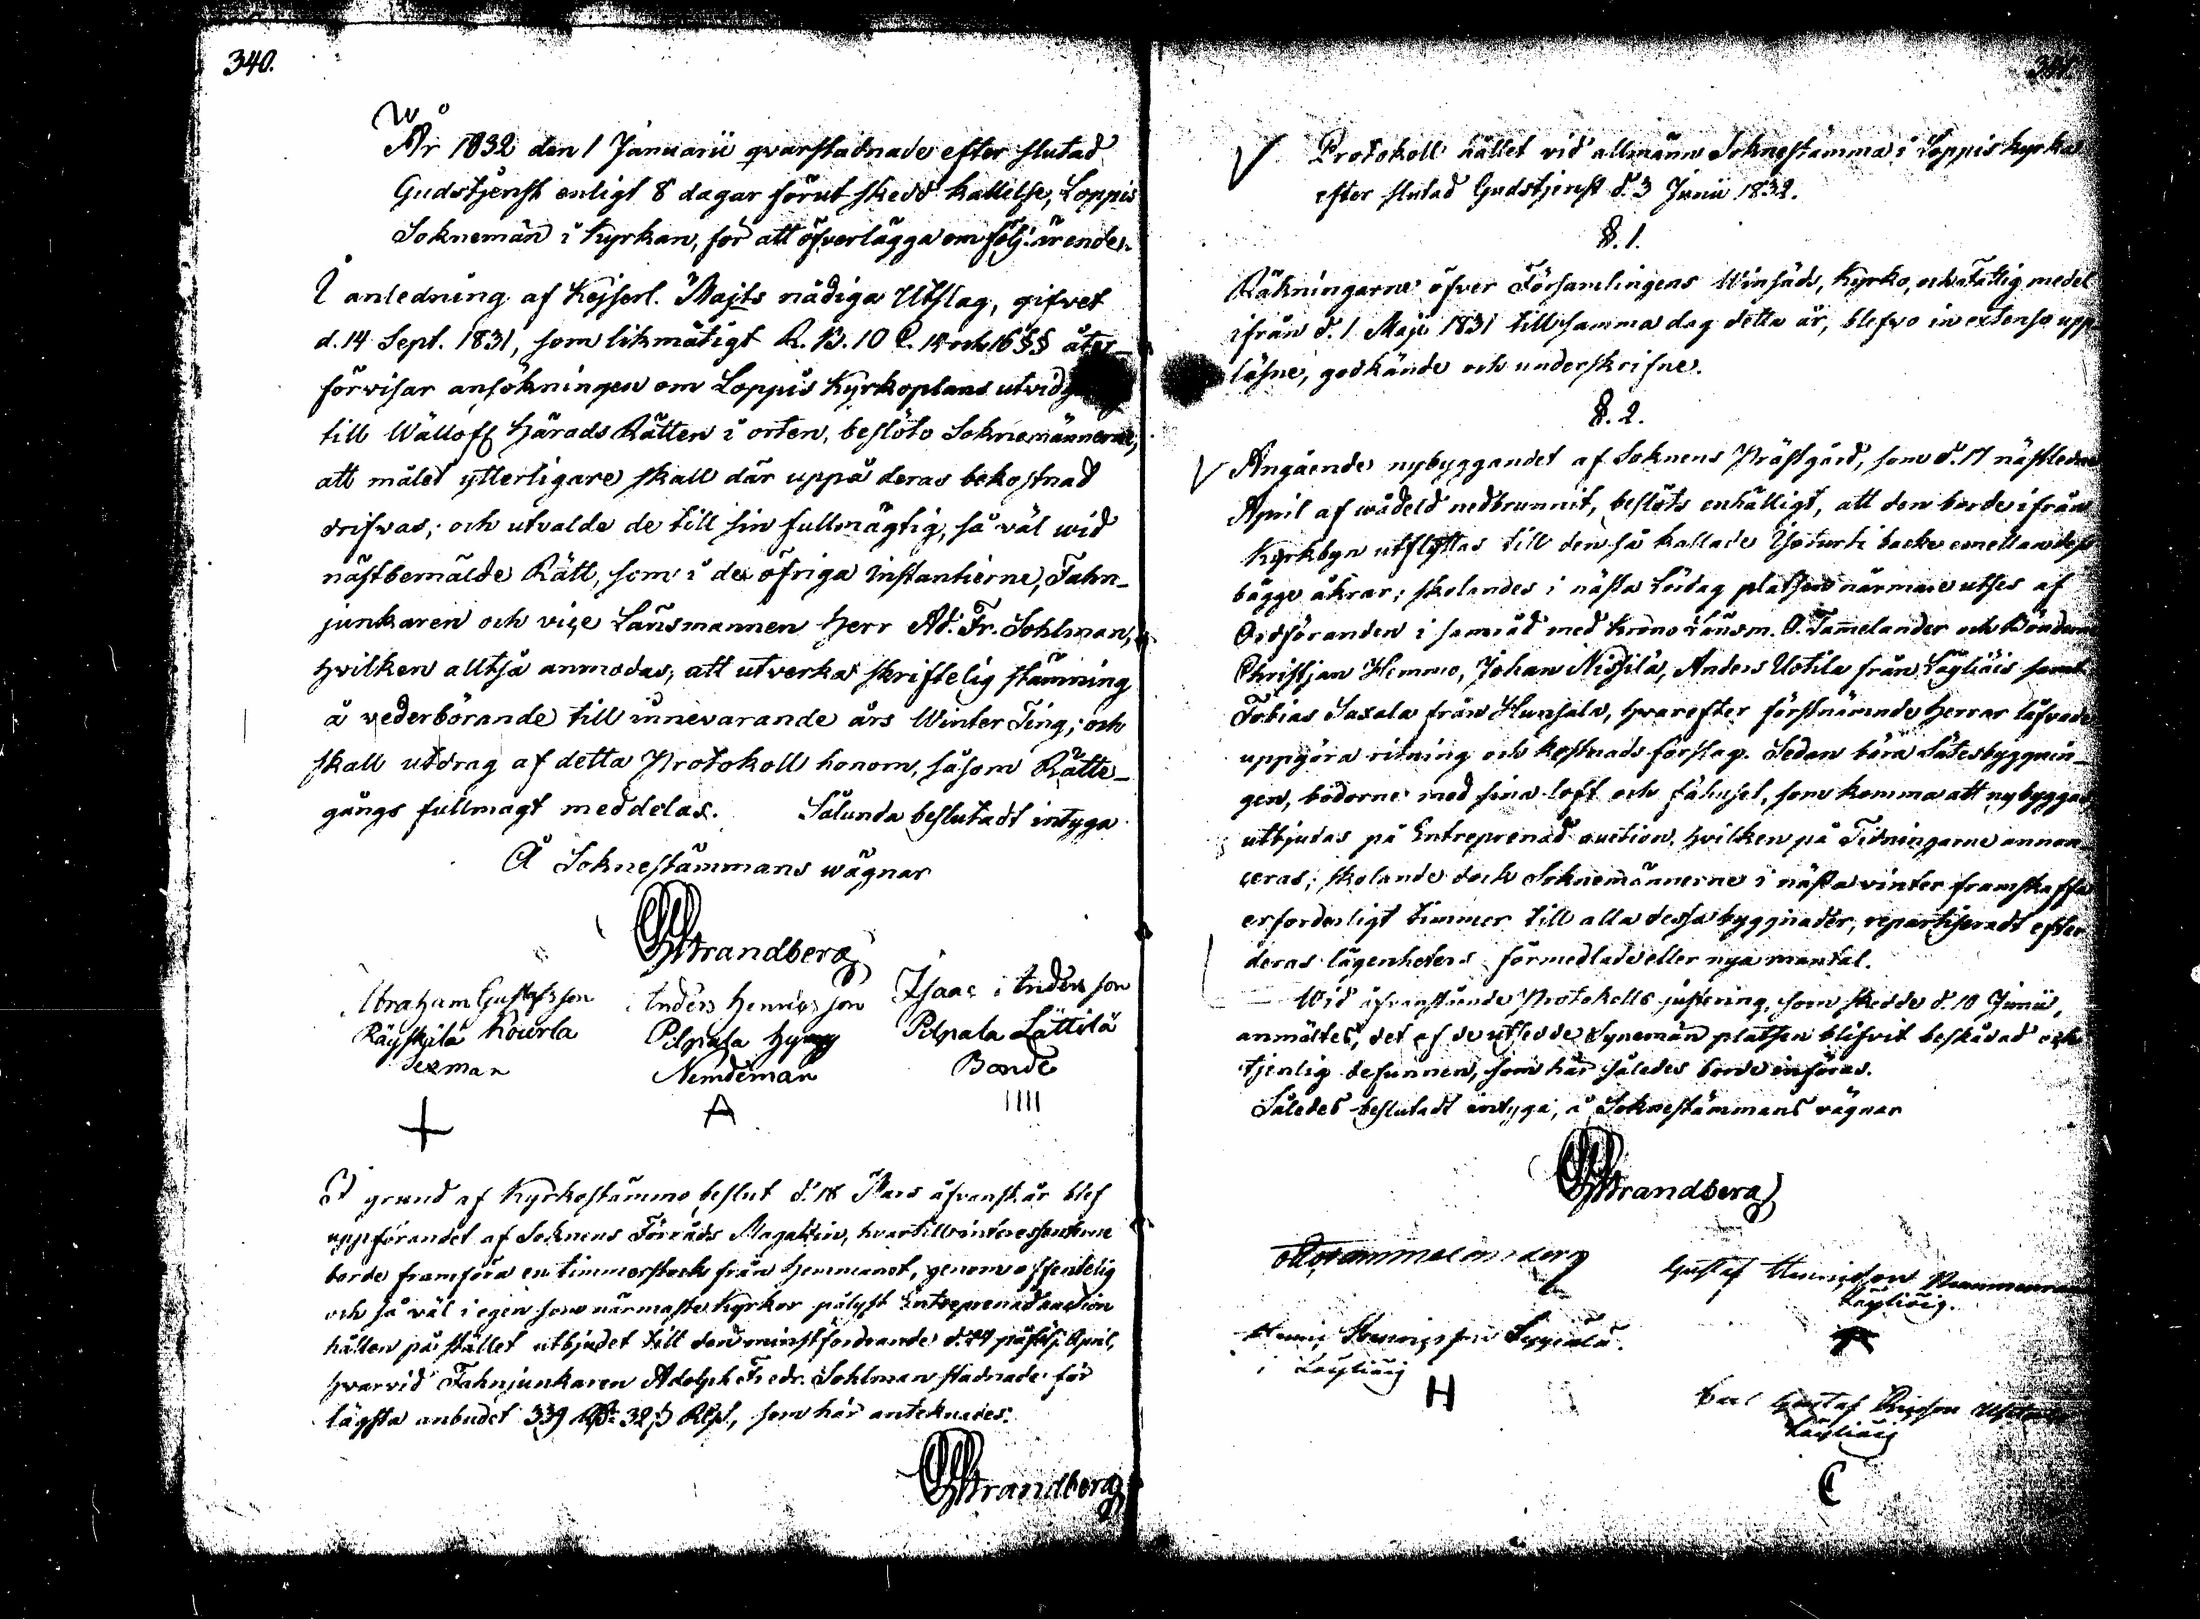 340.
År 1832 den 1 Januarii qvarstadnade efter slutad
Gudstjenst enligt 8 dagar förut skedd kallelse, Loppis
Soknemän i Kyrkan, för att öfverlägga om följ. ärende.
I anledning af Kejserl. Majts nådiga Utslag, gifvet
d. 14 Sept. 1831, som likmätigt R. B. 10 C. 15 och 16 §§ åter-
förvisar ansökningen om Loppis Kyrkoplans
till Wällofl. Härads Rätten i orten, beslöto Soknemännerne,
att målet ytterligare skall där uppå deras bekostnad
drifvas; och utvalde de till sin fullmägtig, så väl wid
nästbemälde Rätt, som i de öfriga instantierne, Fahn-
junkaren och viçe Länsmannen Herr Ad. Fr. Sohlman,
hvilken alltså anmodas, att utverka skriftelig stämning
å vederbörande till innevarande års Winter Ting; och
skall utdrag af detta Protokoll honom, såsom Rätte-
gångs fullmagt meddelas. Sålunda beslutadt intyga
Å Soknestämmans wägnar
Strandberg
Abraham Gustafsson Anders Henricsson Isaac Andersson
Räyskälä Kourla Pilpala Pilpala Lättilä
Sexman Nemdeman Bonde
A IIII
På grund af Kyrkostämmo beslut d. 18 Mars åfvanst. år blef
uppförandet af Soknens Förråds Magatzin, hvartill interessenterne
borde framföra en timmerstock från Hemmanet, genom offentelig
och så väl i egen som närmaste Kyrkor pålyst Entreprenad auction
hållen på stället utbjudet till den minstfordrande d. påfölj. April,
hvarvid Fahnjunkaren Adolph Fredr. Sohlman stadnade för
lägsta anbudet 339 32 som här anteknades.
Strandberg
341.
Protokoll hållet vid allmänn Soknestämma i Loppis kyrka
efter slutad Gudstjenst d. 3 Junii 1832.
§. 1.
Räkningarne öfver Församlingens Winsäds, Kyrko, och Fattig medel
ifrån d. 1 Maji 1831 till samma dag detta år, blefvo in extenso upp
läsne, godkände och underskrifne.
§. 2.
Angående nybyggandet af Soknens Prästgård, som d. 17 nästleden
April af wådeld nedbrunnit, beslöts enhälligt, att den borde ifrån
Kyrkbyn utflyttas till den så kallade backe emellan dess
bägge åkrar; skolandes i nästa Lördag platsen närmare utses af
Ordföranden i samråd med Krono Länsm. O. Tamelander och Bönderne
Christjan Hemmo, Johan Nissilä, Anders Uotila från Läyliäis samt
Tobias Saxala från Hunsala, hvarefter förstnämnde Herrar låfvade
uppgöra ritning och kostnads förslag. Sedan böra Sätesbyggnin-
gen, bodorne med sina loft och fähuset, som komma att nybyggas,
utbjudas på Entreprenad auction, hvilken på Tidningarne annon
çeras; skolande dock Soknemännerne i nästa vinter framskaffa
erforderligt timmer till alla dessa byggnader, repartiseradt efter
deras lägenheters förmedlade eller nya mantal.
Wid åfvanstående Protokolls justering, som skedde d. 10 Junii,
anmältes, det af de utsedde Synemän platsen blifvit beskådad och
tjenlig befunnen, som här således borde införas.
Således beslutadt intyga, å Soknestämmans vägnar
Strandberg
Gustaf Henricson
Läyliäis.
Henric Henricsson Seppälä.
i Läyliäis
H
Carl Gustaf
Läyliäis
C